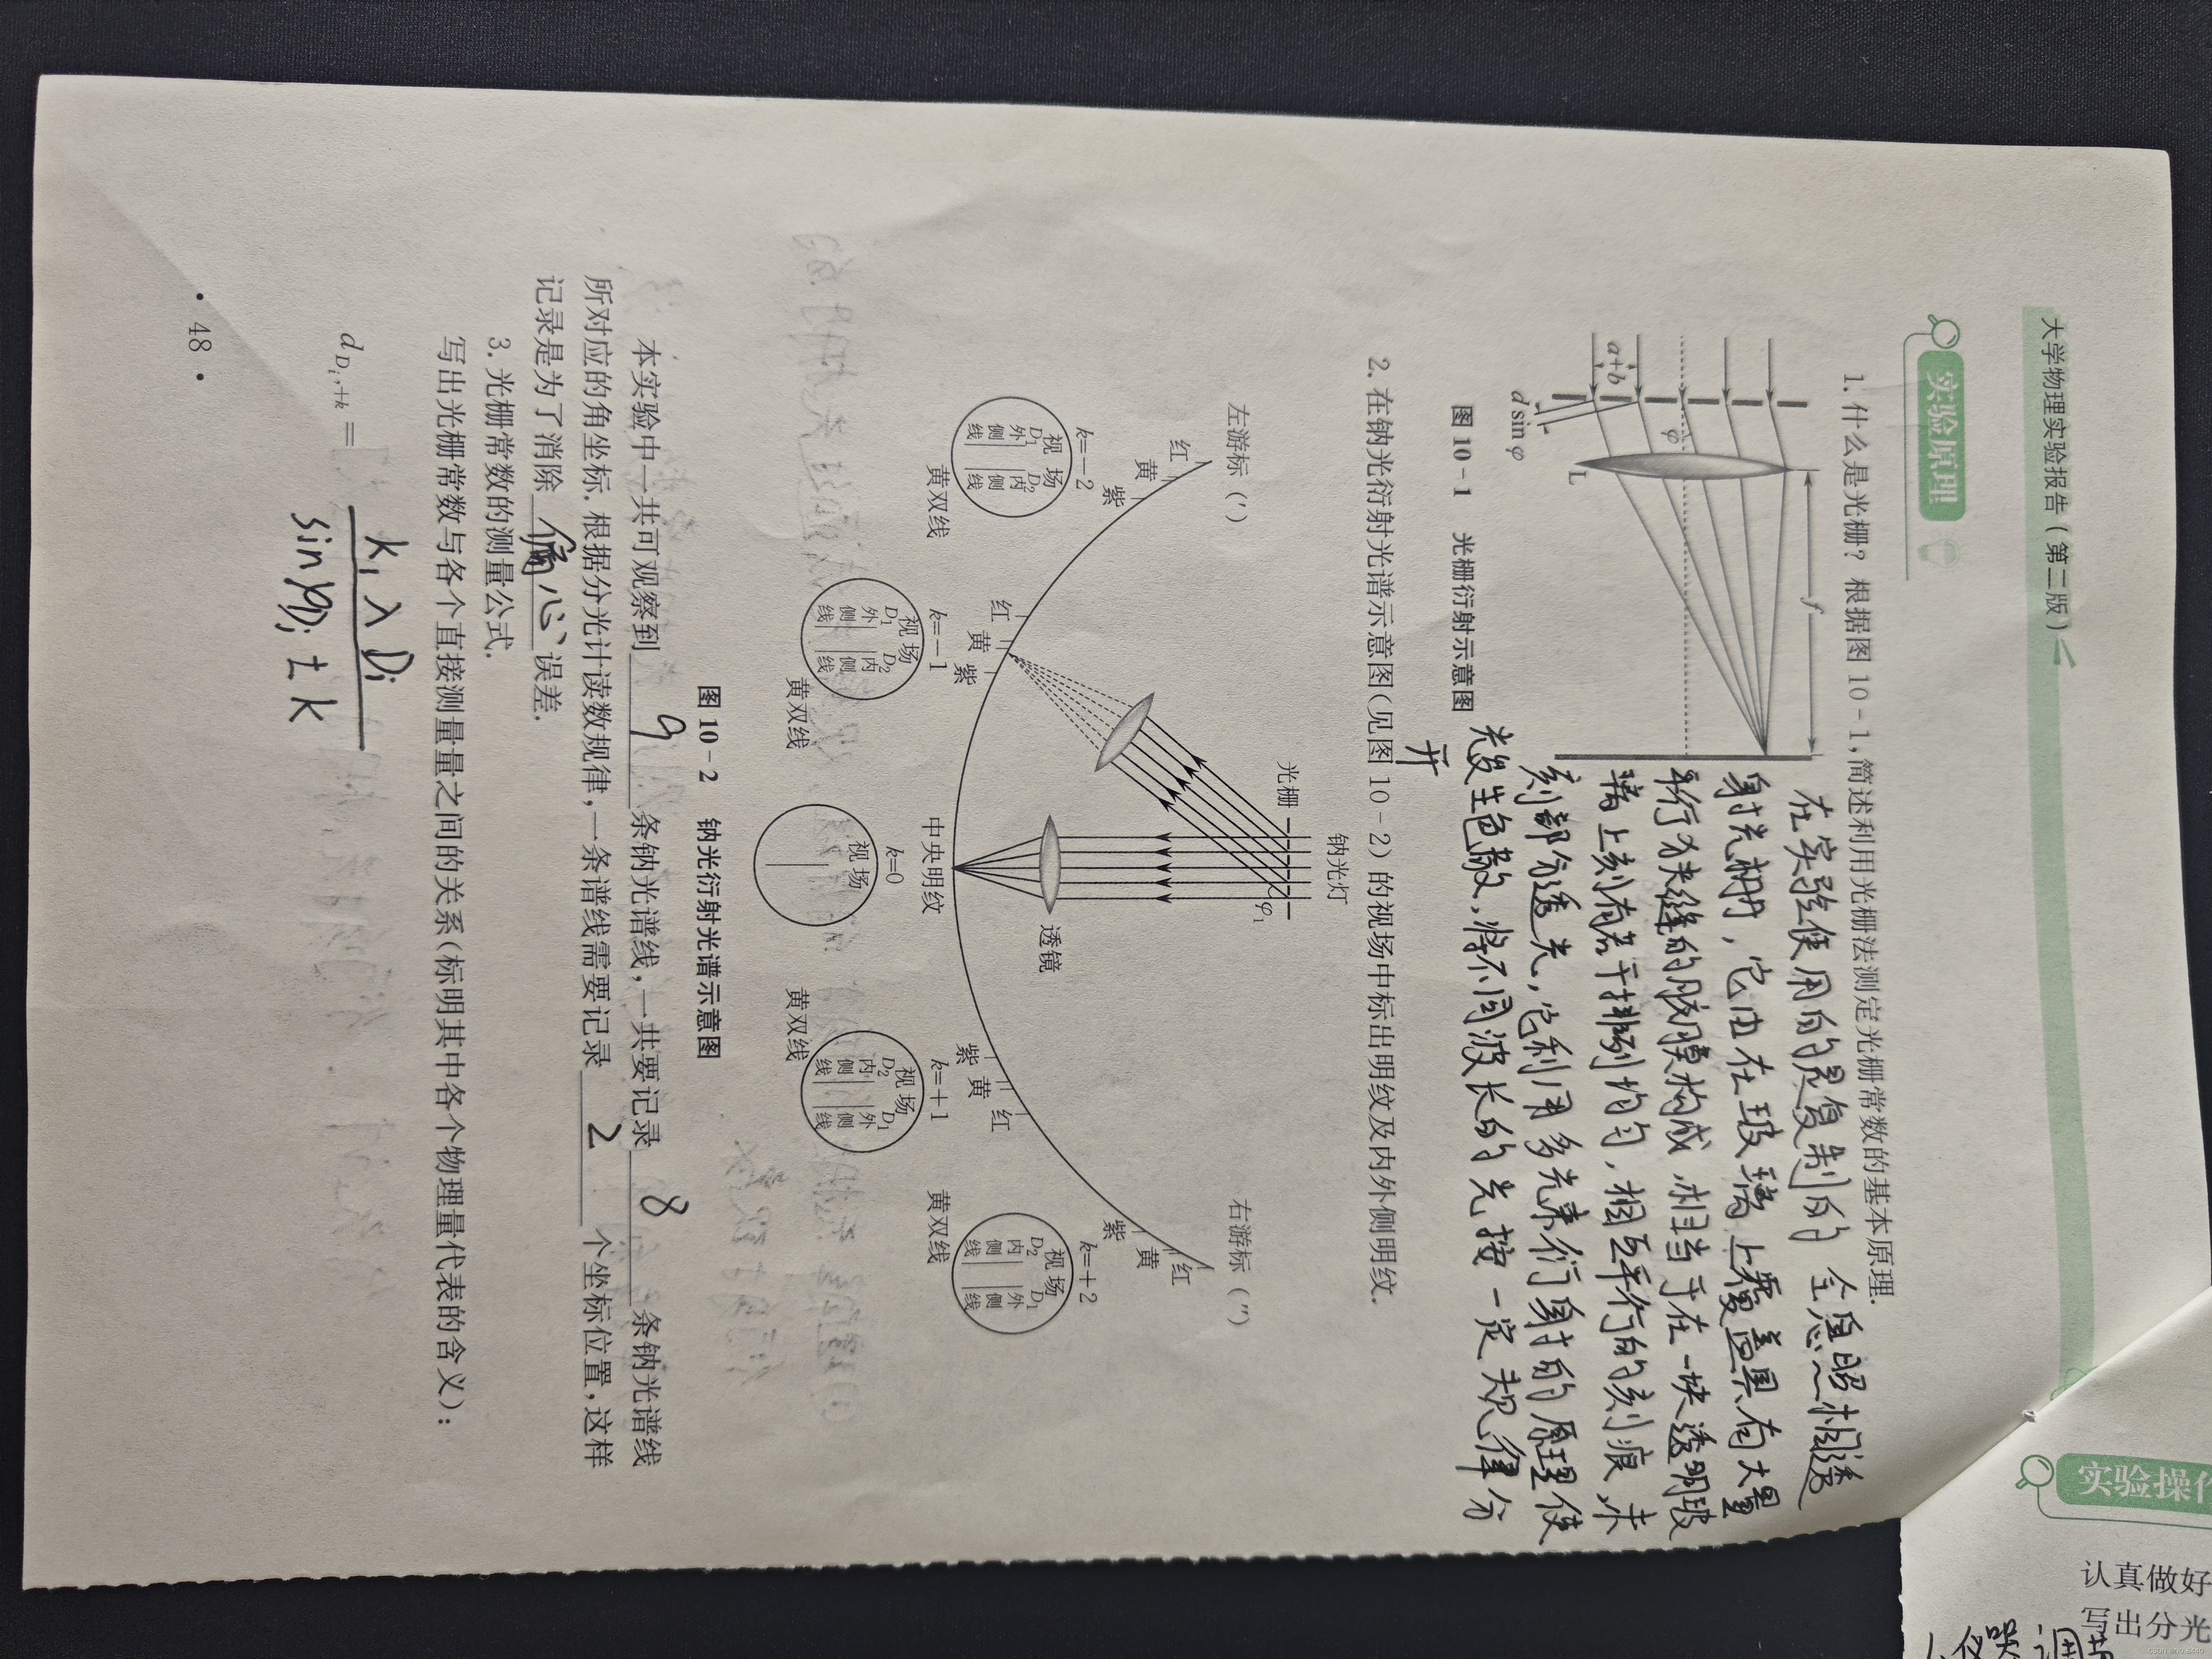 大学物理实验报告(第二版)
实验原理
1. 什么是光栅? 根据图 10-1,简述利用光栅法测定光栅常数的基本原理.
f
a+b
φ
L
d sin φ
图 10-1 光栅衍射示意图
在实验使用的是复制的全息照相透
射光栅,它由在玻璃上覆盖具有大量
平行狭缝的胶膜构成,相当于在一块透明玻
璃上刻有若干排列均匀,相互平行的刻痕,未
刻部分透光,它利用多光束衍射的原理使
光发生色散,将不同波长的光按一定规律分
开
2. 在钠光衍射光谱示意图(见图 10-2)的视场中标出明纹及内外侧明纹.
钠光灯
光栅
φ₁
左游标(′)
右游标(″)
红
黄
紫
红
黄
紫
紫
黄
红
紫
黄
红
透镜
中央明纹
k=-2
视场
D₁ D₂
外 内
侧 侧
线 线
黄双线
k=-1
视场
D₁ D₂
外 内
侧 侧
线 线
黄双线
k=0
视场
k=+1
视场
D₂ D₁
内 外
侧 侧
线 线
黄双线
k=+2
视场
D₂ D₁
内 外
侧 侧
线 线
黄双线
图 10-2 钠光衍射光谱示意图
本实验中一共可观察到 9 条钠光谱线,一共要记录 8 条钠光谱线
所对应的角坐标. 根据分光计读数规律,一条谱线需要记录 2 个坐标位置,这样
记录是为了消除 偏心 误差.
3. 光栅常数的测量公式.
写出光栅常数与各个直接测量量之间的关系(标明其中各个物理量代表的含义):
d_{Di,+k} = k₁λDi
sinφDi±k
· 48 ·
实验操作
认真做好
写出分光